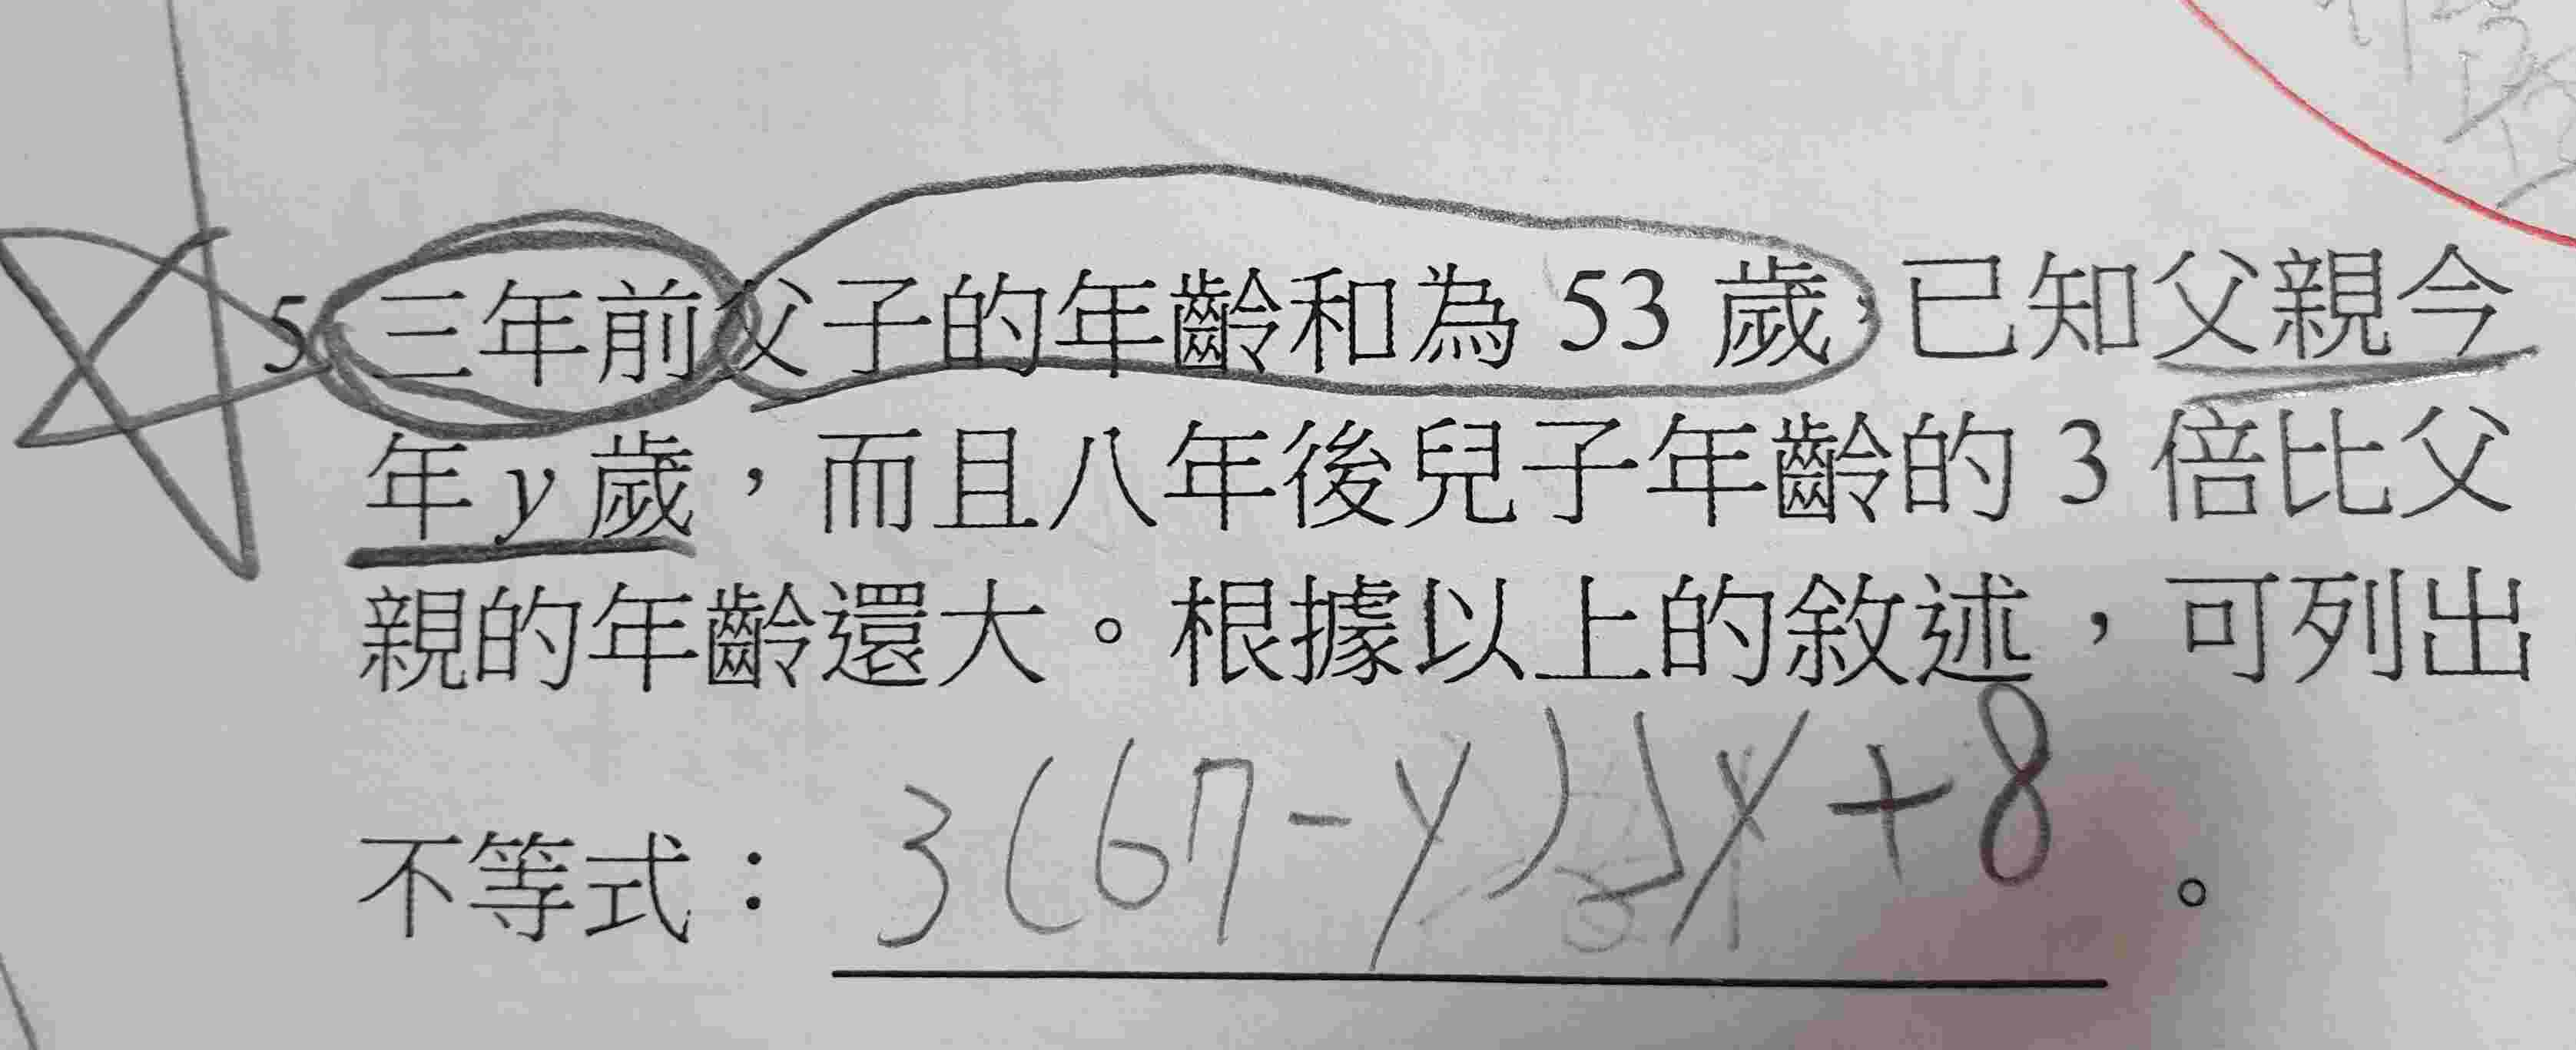 5. 三年前父子的年齡和為 53 歲,已知父親今
年 y 歲,而且八年後兒子年齡的 3 倍比父
親的年齡還大。根據以上的敘述,可列出
不等式: 3(67-y)>y+8 。